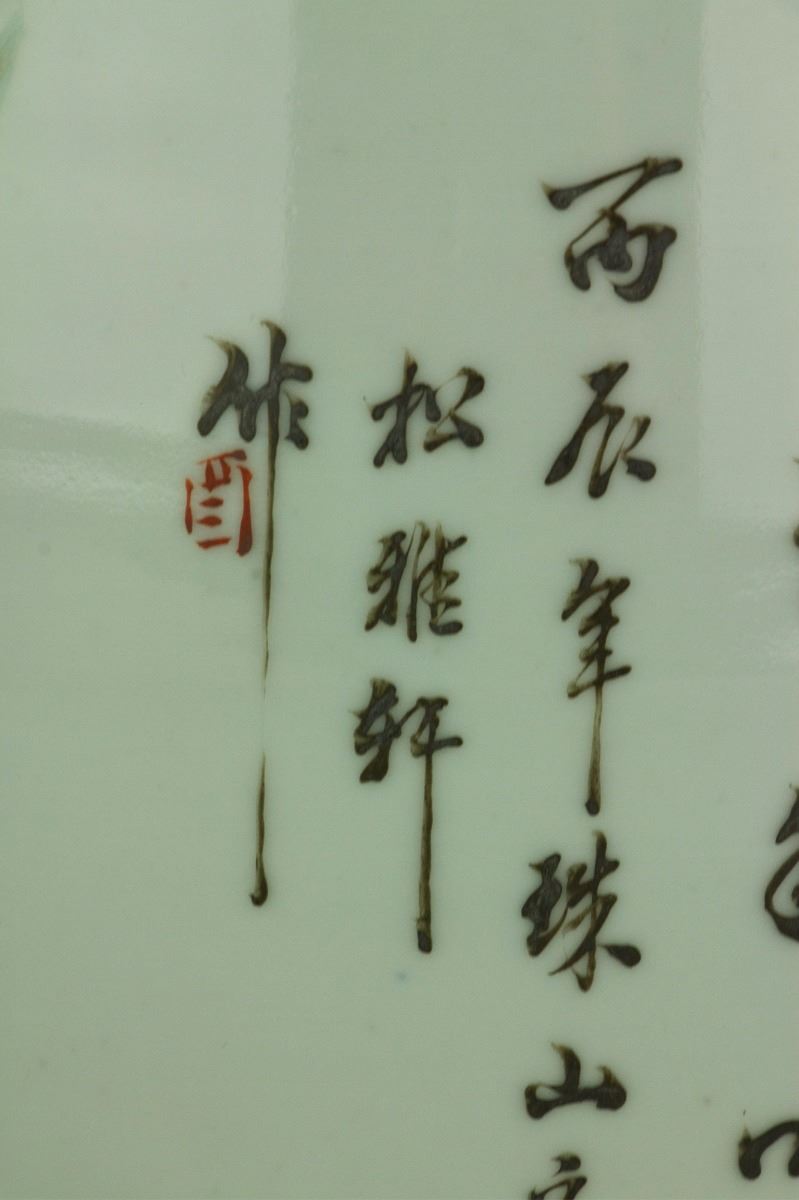 丙辰年珠山
松雅轩
作